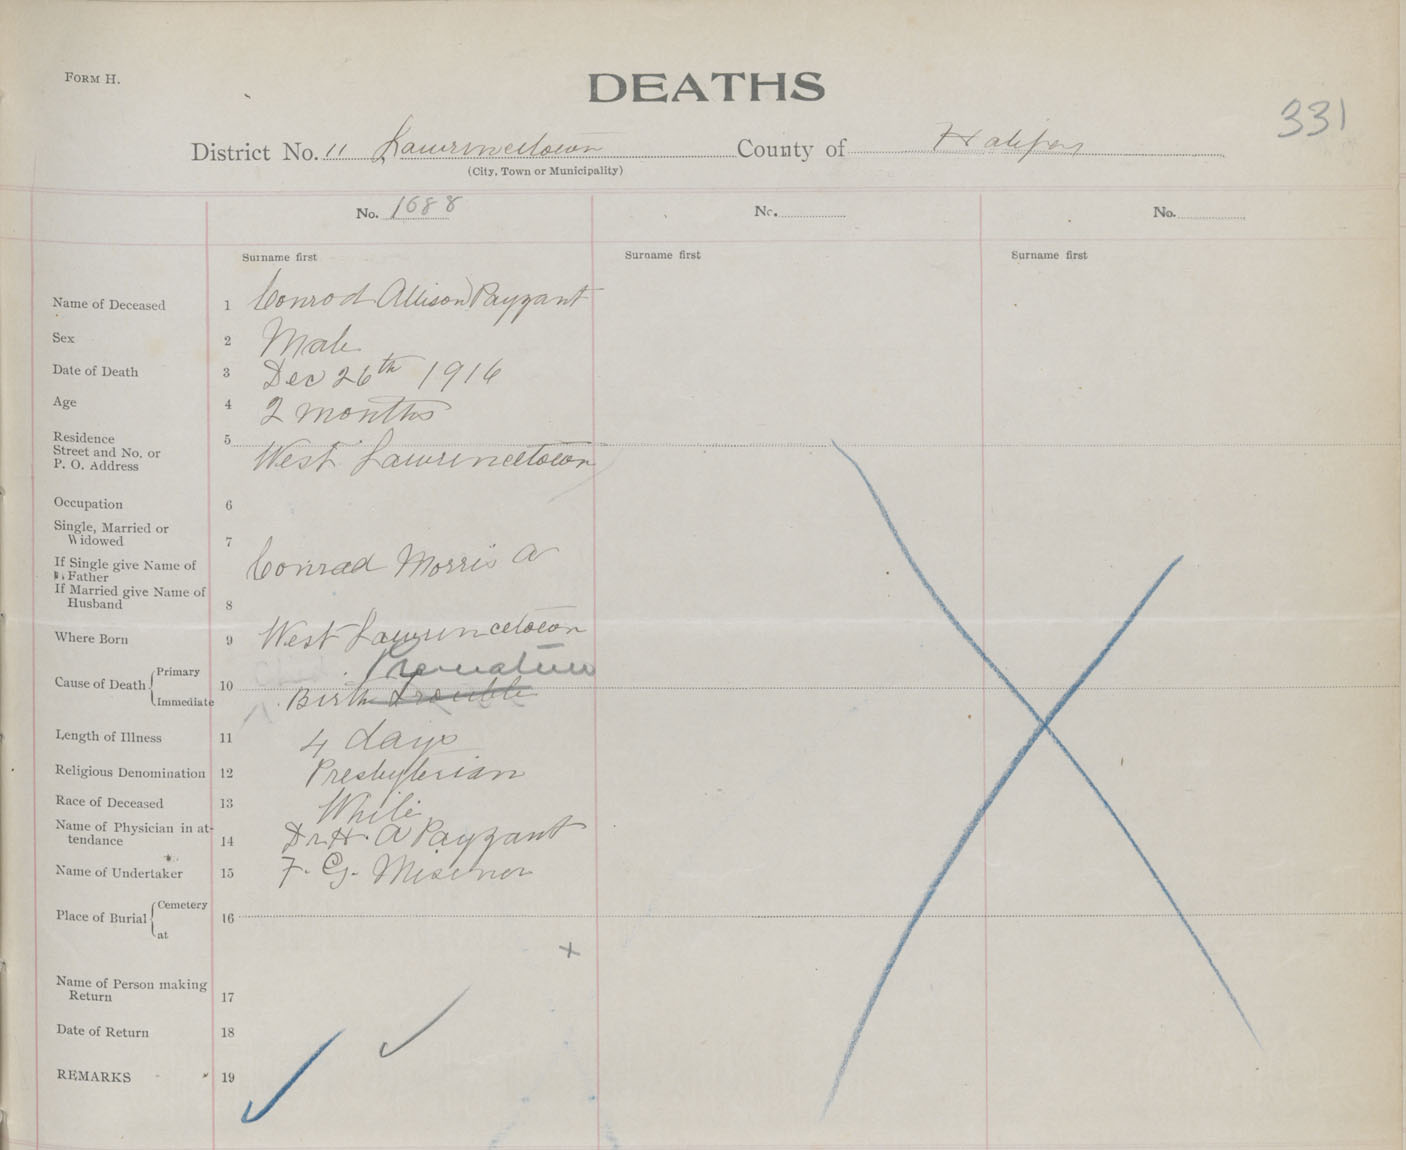 FORM H.
DEATHS
331
District No. 11 Lawrencetown County of Halifax
(City, Town or Municipality)
No. 1688 No. No.
Surname first Surname first Surname first
Name of Deceased 1 Conrod Allison Payzant
Sex 2 Male
Date of Death 3 Dec 26th 1916
Age 4 2 months
Residence 5
Street and No. or
P. O. Address West Lawrencetown
Occupation 6
Single, Married or
Widowed 7
If Single give Name of
Father Conrad Morris A
If Married give Name of
Husband 8
Where Born 9 West Lawrencetown
Cause of Death Primary Premature
10
Immediate Birth Trouble
Length of Illness 11 4 days
Religious Denomination 12 Presbyterian
Race of Deceased 13 White
Name of Physician in at-
tendance 14 Dr H. A Payzant
Name of Undertaker 15 F. G. Misener
Place of Burial Cemetery
16
at
Name of Person making
Return 17
Date of Return 18
REMARKS 19